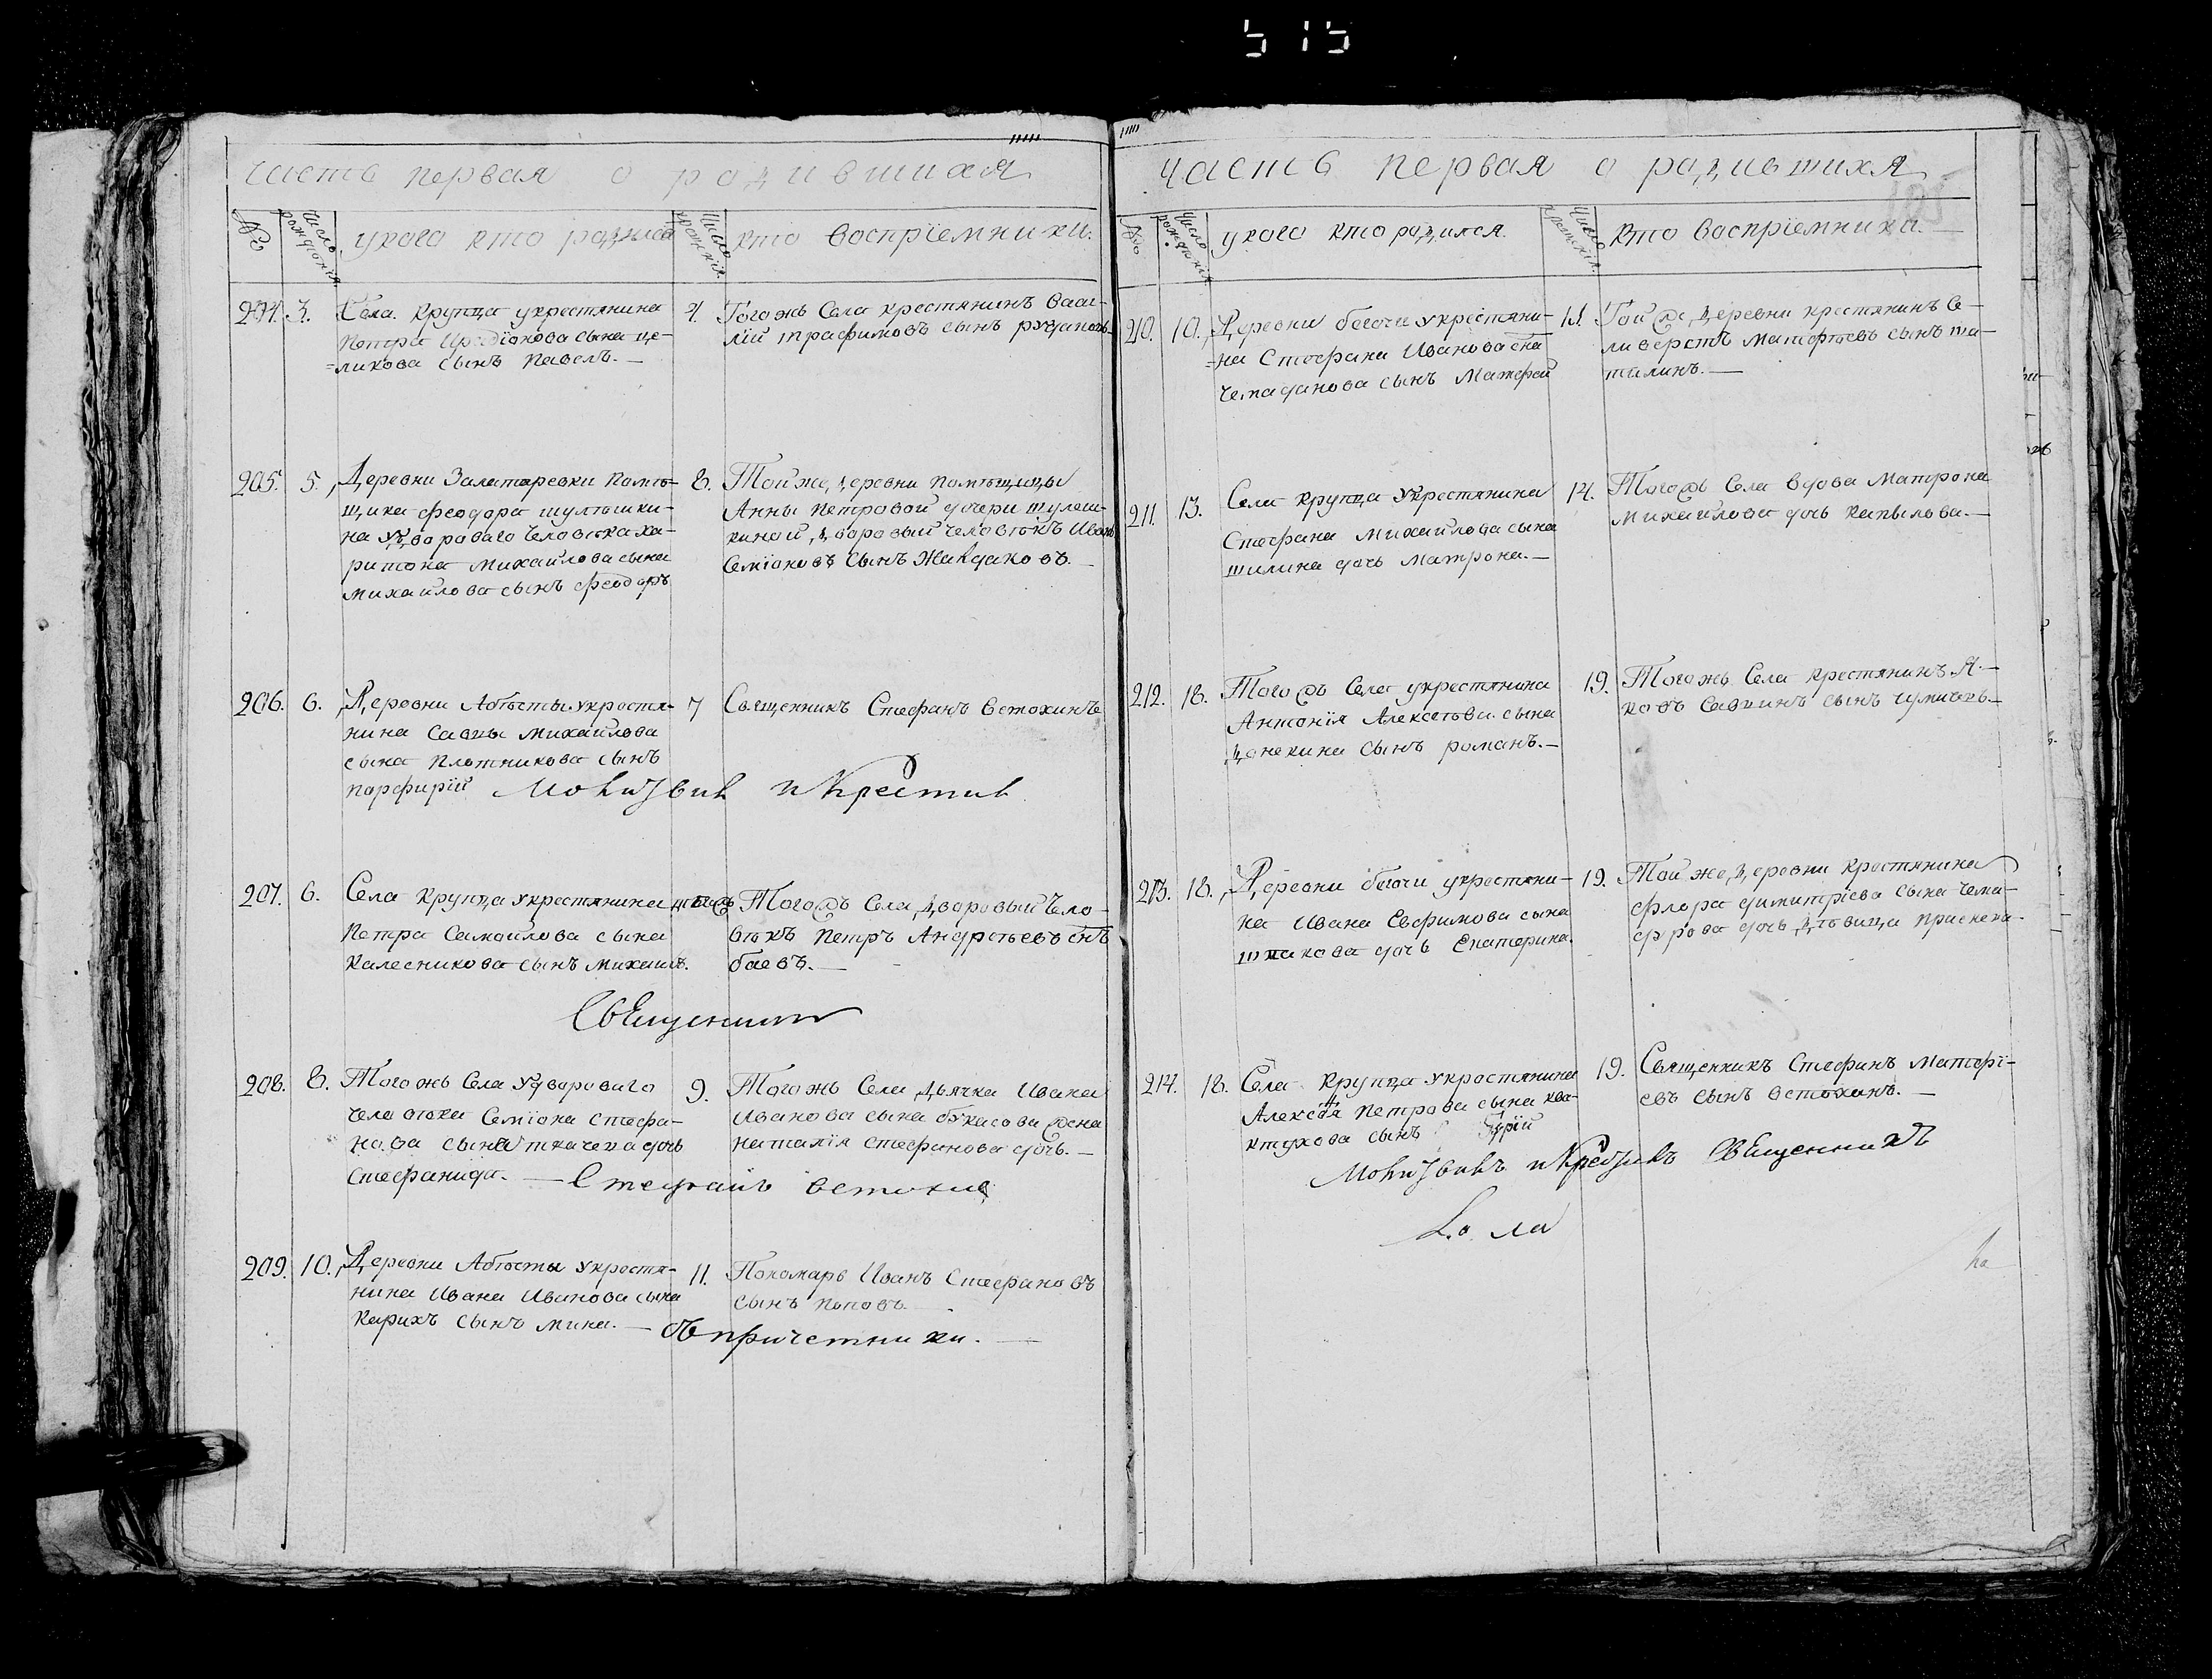 515
часть первая о родившихся
№
Число рождѣнія
у кого кто родился
Число крещѣнія
кто воспріемники.
204. 3. Села Крупца укрестянина
Петра
=ликова сынъ Павелъ. —
4. Тогожъ Села крестянинъ Васи-
лій трафимовъ сынъ
205. 5. Деревни Залатаревки помѣ-
щика феодора шулѣшки-
на удвороваго человѣка ха-
ритона Михайлова сына
Михайлова сынъ феодоръ
6. Той же деревни помѣщицы
Анны Петровой дочери шулеш-
киной дворовый человѣкъ Иванъ
Семіоновъ сынъ Жандаковъ.
206. 6. Деревни Абѣсты укрестя-
нина Саввы Михайлова
сына Плотникова сынъ
парфирій
7 Священникъ Стефанъ Ветохинъ
Молитвилъ и крестилъ
207. 6. Села Крупца укрестянина
Петра Самойлова сына
Калесникова сынъ Михаилъ.
тогожъ Тогожъ Села дворовый чело-
вѣкъ Петръ Андрѣевъ снъ
баевъ. —
Священникъ
208. 8. Тогожъ Села удвороваго
человѣка Семіона Стефа-
нова сына ткачева дочь
Стефанида. —
9. Тогожъ Села Дьячка Ивана
Иванова сына жена
наталія стефанова дочь. —
Стефанъ Ветохинъ
209. 10. Деревни Абѣсты укрестя-
нина Ивана Иванова сына
Карихъ сынъ мина. —
11. Пономарь Иванъ Стефановъ
сынъ поповъ.
съ причетники. —
часть первая о родившихся
№
Число рождѣнія
у кого кто родился
Число крещѣнія.
кто воспріемники. —
210. 10. Деревни бегочи укрестяни-
=на Стефана Иванова сна
Чемаданова сынъ Матфей
11. Той же деревни крестянинъ Се-
ливерстъ Матфѣевъ сынъ ша-
тилинъ. —
211. 13. Села Крупца Укрестянина
Стефана Михайлова сына
шилина дочь Матрона. —
14. Тогожъ Села вдова Матрона
Михайлова дочь Капылова. —
212. 18. Тогожъ Села укрестянина
Антонія Алексѣева сына
Донекина сынъ романъ. —
19. Тогожъ Села крестянинъ Я-
ковъ Саввинъ сынъ
213. 18. Деревни бегочи укрестяни-
на Ивана Евфимова сына
шпакова дочь Екатерина.
19. Той же деревни Крестянина
Флора димитріева сына Чема-
дурова дочь дѣвица
214. 18. Села Крупца укрестянина
Алексѣя Петрова сына ква-
ктухова сынъ Гурій
19. Священникъ Стефанъ Матфі-
евъ сынъ Ветохинъ. —
Молитвилъ и крестилъ Священникъ